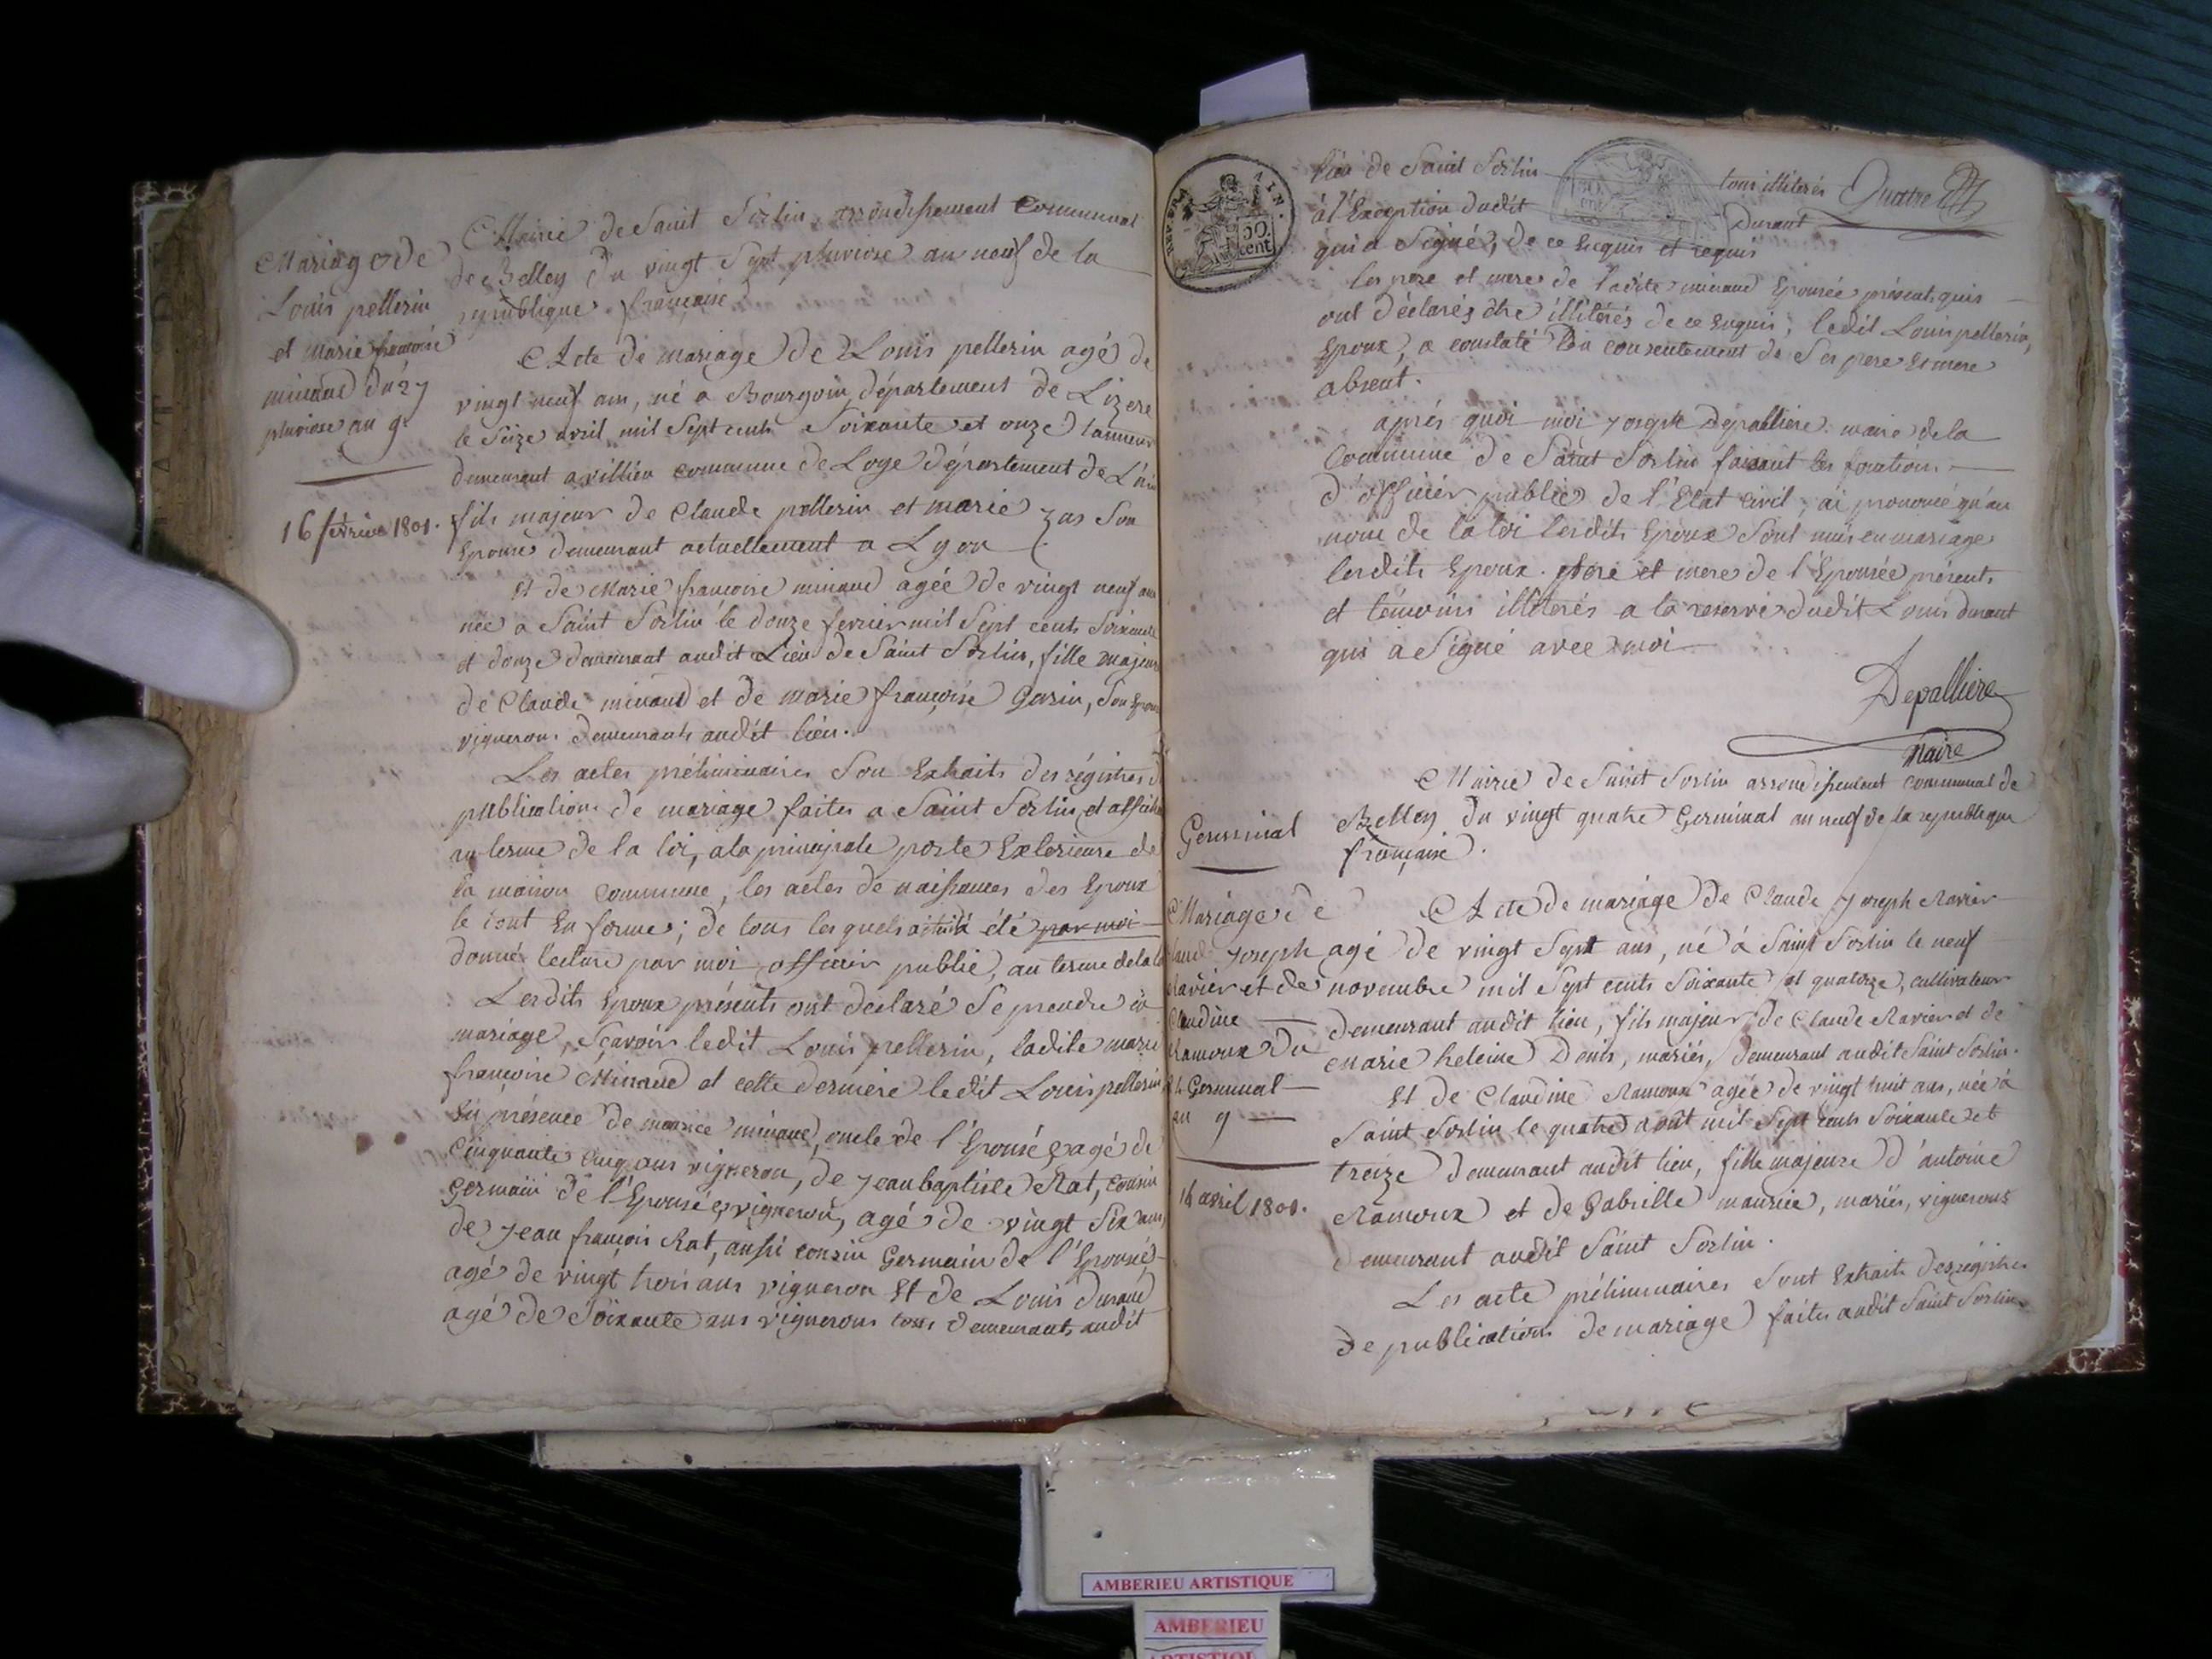 Mariage de
Louis pellerin
et marie françoise
minaud du 27
pluviose an 9e
16 fevrier 1801.
Mairie de Saint Sorlin, arrondissement communal
de Belley du vingt Sept pluviose an neuf de la
republique française
Acte de mariage de Louis pellerin agé de
vingt neuf ans, né a Bourgoin département de Lizere
le Seize avril mil Sept cents Soixante et onze tanneur
demeurant a villieu commune de Loye département de L'ain
fils majeur de Claude pellerin et marie Son
Epouse demeurant actuellement a Lyon
Et de Marie françoise minaud agée de vingt neuf ans
née a Saint Sorlin le douze fevrier mil Sept cents Soixante
et douze demeurant audit Lieu de Saint Sorlin, fille majeure
de Claude minaud et de marie françoise Garin, Son Epouse
vignerons demeurants audit lieu.
Les actes préliminaires Son Extraits des régistres d
publications de mariage faites a Saint Sorlin et affichés
au terme de la loi, a la principale porte Exterieure de
la maison commune, les actes de naissances des Epoux
le tout En forme; de tous lesquels acte il a été par moi
donné lecture par moi officier public, au terme de la loi
Lesdits Epoux présents ont déclaré Se prendre en
mariage, Sçavoir ledit Louis pellerin, ladite marie
françoise Minaud et cette derniere ledit Louis pellerin
En présence de maurice minaud, oncle de l'Epousée, agé de
Cinquante cinq ans vigneron, de Jean baptiste Rat, cousin
Germain de l'Epousée, vigneron, agé de vingt Six ans,
de Jean françois Rat, aussi cousin Germain de l'Epousée
agé de vingt trois ans vigneron Et de Louis durand
agé de Soixante ans vignerons tous demeurants audit
AIN.
50
cent
lieu de Saint Sorlin tous illiterés Quatre
à l'Exception dudit Durant
qui a Signé, de ce Enquis et requis
les pere et mere de ladite minaud Epousée présent, quis
ont déclarés être illiterés de ce Enquis; ledit Louis pellerin,
Epoux, a constaté Du consentement de Ses pere Et mere
absent.
après quoi moi Joseph Depalliere maire de la
Commune de Saint Sorlin faisant les fonctions
d'officier public de l'Etat civil, ai prononcé qu'au
nom de la loi lesdits Epoux Sont unis en mariage
lesdits Epoux. pere et mere de l'Epousée présents
et témoins illiterés a la reserve dudit Louis durant
qui a Signé avec moi
Depalliere
Maire
Germinal
Mairie de Saint Sorlin arrondissement communal de
Belley du vingt quatre Germinal an neuf de la republique
française.
Mariage de
Claude Joseph
Ravier et de
Claudine
Ramoux Du
24 Germinal
an 9
14 avril 1801.
Acte de mariage de Claude Joseph Ravier
agé de vingt Sept ans, né à Saint Sorlin le neuf
novembre mil Sept cents Soixante et quatorze, cultivateur
demeurant audit lieu, fils majeur de Claude Ravier et de
marie heleine Denis, mariés, demeurant audit Saint Sorlin.
Et de Claudine Ramoux agée de vingt huit ans, née à
Saint Sorlin le quatre août mil Sept cents Soixante et
treize demeurant audit lieu, fille majeure d'antoine
Ramoux et de Gabrille maurice, mariés, vignerons
demeurant audit Saint Sorlin.
Les acte préliminaires Sont Extraits des régistres
de publications de mariage faites audit Saint Sorlin
AMBERIEU ARTISTIQUE
AMBERIEU
ARTISTIQUE